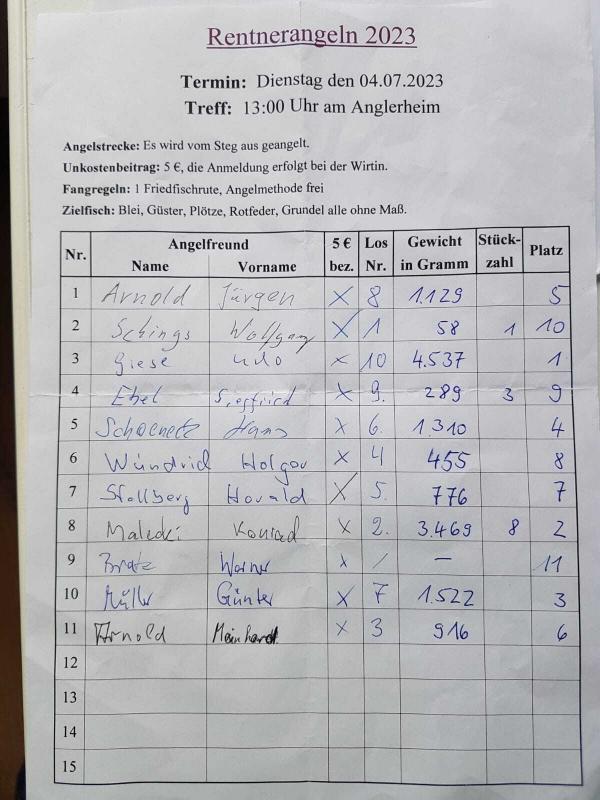 Rentnerangeln 2023
Termin: Dienstag den 04.07.2023
Treff: 13:00 Uhr am Anglerheim
Angelstrecke: Es wird vom Steg aus geangelt.
Unkostenbeitrag: 5 €, die Anmeldung erfolgt bei der Wirtin.
Fangregeln: 1 Friedfischrute, Angelmethode frei
Zielfisch: Blei, Güster, Plötze, Rotfeder, Grundel alle ohne Maß.
Nr. Angelfreund Name Vorname 5 € bez. Los Nr. Gewicht in Gramm Stück- zahl Platz
1 Arnold Jürgen X 8 1.129 5
2 Schings Wolfgang X 1 58 1 10
3 Giese Udo X 10 4.537 1
4 Ebel Siegfried X 9. 289 3 9
5 Hans X 6. 1.310 4
6 Wündrich Holger X 4 455 8
7 Stollberg Harald X 5. 776 7
8 Malecki Konrad X 2. 3.469 8 2
9 Werner X / — 11
10 Müller Günter X 7 1.522 3
11 Arnold Meinhard X 3 916 6
12
13
14
15